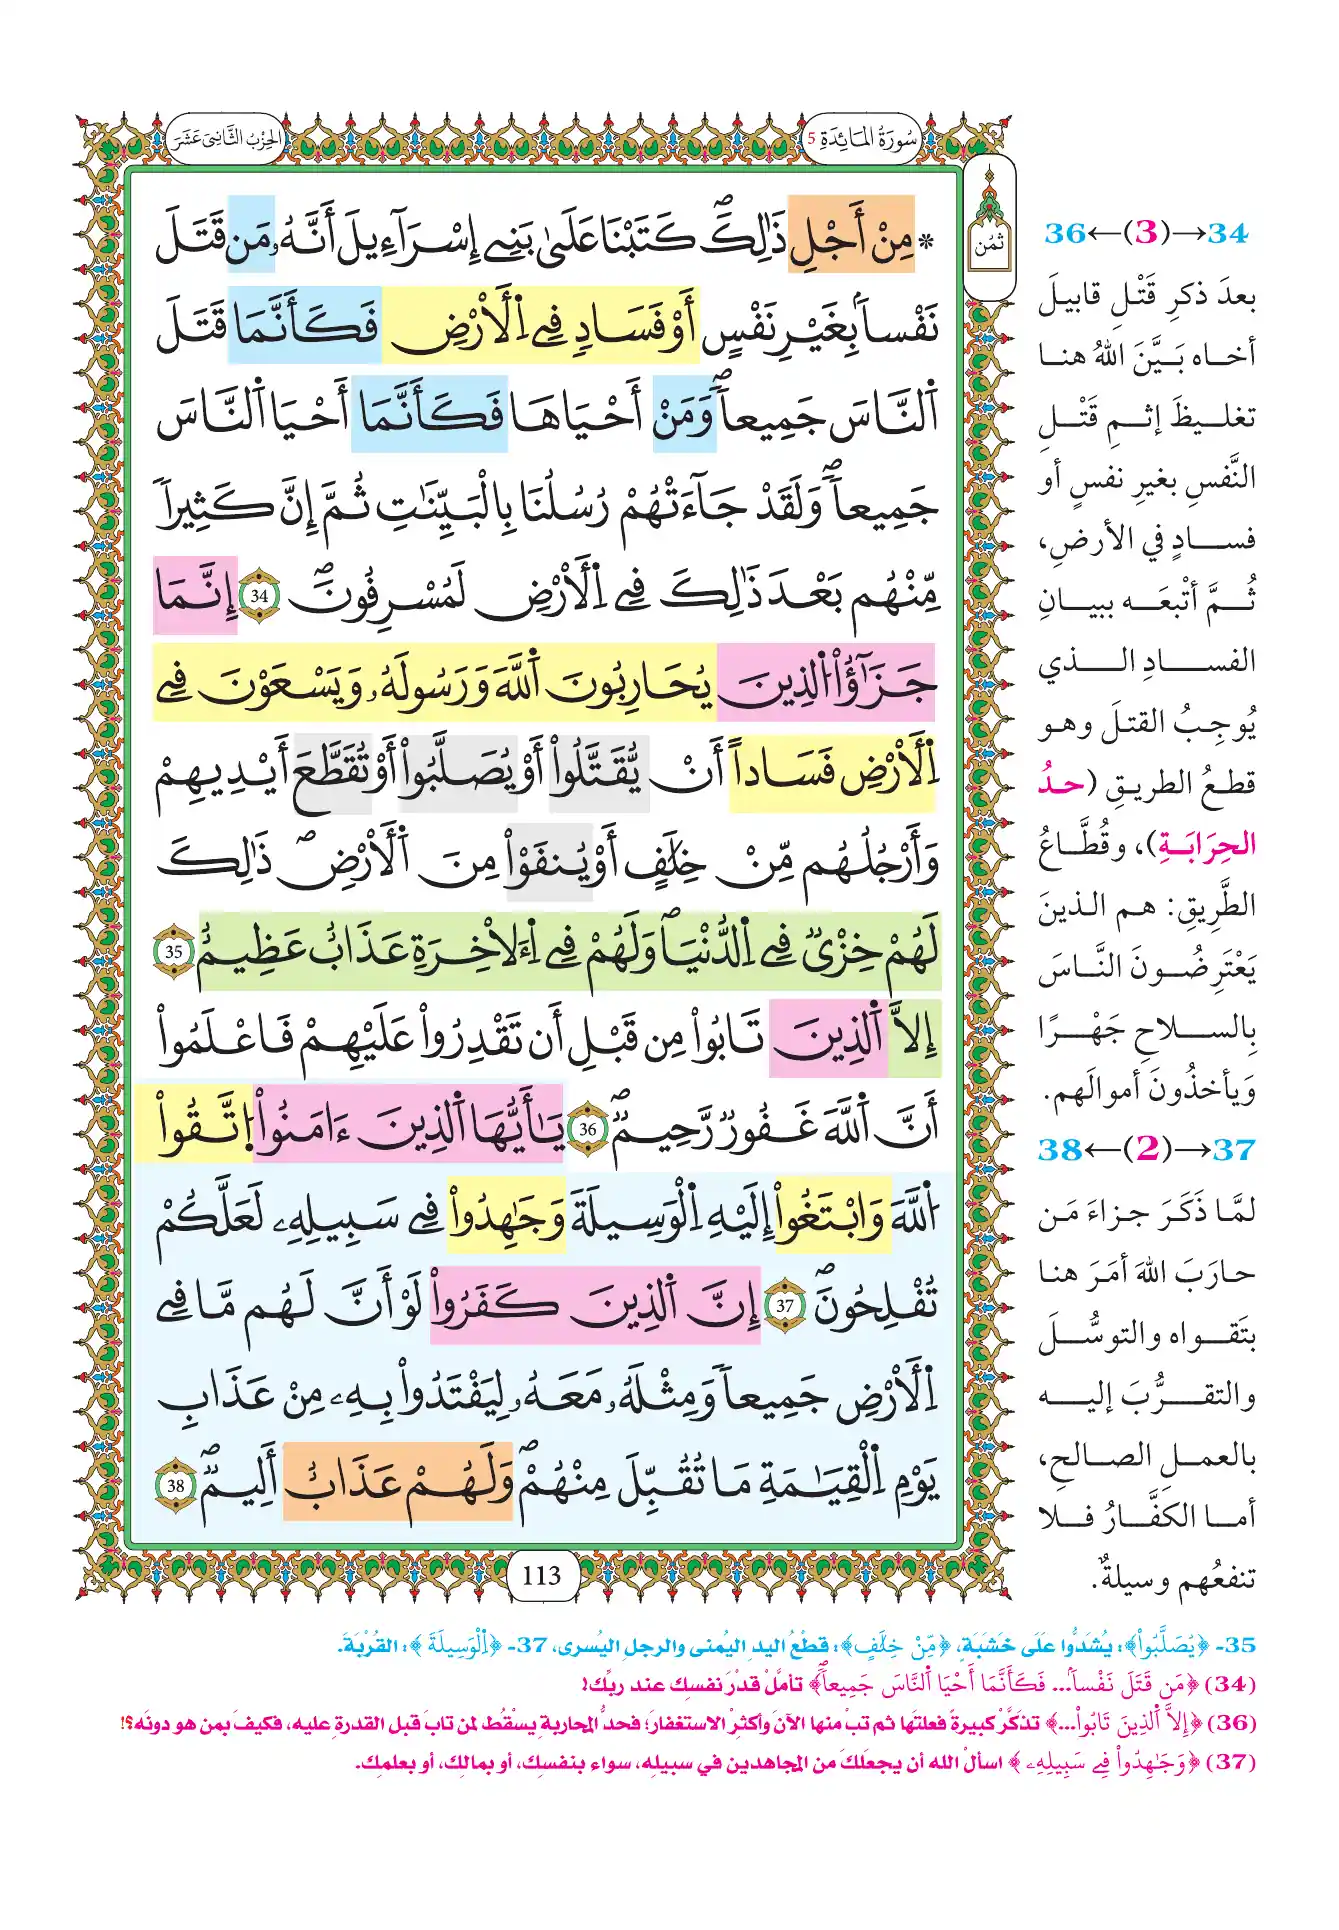 سُورَةُ المَائِدَةِ 5
الحِزْبُ الثَّانِي عَشَرَ
ثُمُن
* مِنْ أَجْلِ ذَٰلِكَۖ كَتَبْنَا عَلَىٰ بَنِےٓ إِسْرَآءِيلَ أَنَّهُۥ مَن قَتَلَ
نَفْساَۢ بِغَيْرِ نَفْسٍ أَوْ فَسَادٖ فِے اِ۬لَارْضِ فَكَأَنَّمَا قَتَلَ
اَ۬لنَّاسَ جَمِيعاٗۖ وَمَنَ اَحْيَاهَا فَكَأَنَّمَآ أَحْيَا اَ۬لنَّاسَ
جَمِيعاٗۖ وَلَقَدْ جَآءَتْهُمْ رُسُلُنَا بِالْبَيِّنَٰتِ ثُمَّ إِنَّ كَثِيراٗ
مِّنْهُم بَعْدَ ذَٰلِكَ فِے اِ۬لَارْضِ لَمُسْرِفُونَۖ 34 إِنَّمَا
جَزَٰٓؤُاْ اُ۬لذِينَ يُحَارِبُونَ اَ۬للَّهَ وَرَسُولَهُۥ وَيَسْعَوْنَ فِے
اِ۬لَارْضِ فَسَاداً اَنْ يُّقَتَّلُوٓاْ أَوْ يُصَلَّبُوٓاْ أَوْ تُقَطَّعَ أَيْدِيهِمْ
وَأَرْجُلُهُم مِّنْ خِلَٰفٍ اَوْ يُنفَوْاْ مِنَ اَ۬لَارْضِۖ ذَٰلِكَ
لَهُمْ خِزْيٞ فِے اِ۬لدُّنْيَاۖ وَلَهُمْ فِے اِ۬لَاخِرَةِ عَذَابٌ عَظِيمٌ 35
اِلَّا اَ۬لذِينَ تَابُواْ مِن قَبْلِ أَن تَقْدِرُواْ عَلَيْهِمْ فَاعْلَمُوٓاْ
أَنَّ اَ۬للَّهَ غَفُورٞ رَّحِيمٞۖ 36 يَٰٓأَيُّهَا اَ۬لذِينَ ءَامَنُواْ اُ۪تَّقُواْ
اُ۬للَّهَ وَابْتَغُوٓاْ إِلَيْهِ اِ۬لْوَسِيلَةَ وَجَٰهِدُواْ فِے سَبِيلِهِۦ لَعَلَّكُمْ
تُفْلِحُونَۖ 37 إِنَّ اَ۬لذِينَ كَفَرُواْ لَوَ اَنَّ لَهُم مَّا فِے
اِ۬لَارْضِ جَمِيعاٗ وَمِثْلَهُۥ مَعَهُۥ لِيَفْتَدُواْ بِهِۦ مِنْ عَذَابِ
يَوْمِ اِ۬لْقِيَٰمَةِ مَا تُقُبِّلَ مِنْهُمْۖ وَلَهُمْ عَذَابٌ اَلِيمٞۖ 38
113
34→(3)←36
بعدَ ذكرِ قَتْلِ قابيلَ
أخاه بَيَّنَ اللهُ هنا
تغليظَ إثمِ قَتْلِ
النَّفسِ بغيرِ نفسٍ أو
فسادٍ في الأرضِ،
ثُمَّ أتْبعَه ببيانِ
الفسادِ الذي
يُوجِبُ القتلَ وهو
قطعُ الطريقِ (حدُ
الحِرَابَةِ)، وقُطَّاعُ
الطَّرِيقِ: هم الذينَ
يَعْتَرِضُونَ النَّاسَ
بِالسلاحِ جَهْرًا
وَيأخذُونَ أموالَهم.
37→(2)←38
لمَّا ذَكَرَ جزاءَ مَن
حارَبَ اللهَ أمَرَ هنا
بتَقواه والتوسُّلَ
والتقرُّبَ إليه
بالعملِ الصالحِ،
أما الكفَّارُ فلا
تنفعُهم وسيلةٌ.
35- ﴿يُصَلَّبُوٓاْ﴾: يُشَدُّوا عَلَى خَشَبَةٍ، ﴿مِّنْ خِلَٰفٍ﴾: قطْعُ اليدِ اليُمنى والرجلِ اليُسرى، 37- ﴿اِ۬لْوَسِيلَةَ﴾: القُرْبَةَ.
(34) ﴿مَن قَتَلَ نَفْساَۢ... فَكَأَنَّمَآ أَحْيَا اَ۬لنَّاسَ جَمِيعاٗۖ﴾ تأمَّلْ قدْرَ نفسِك عند ربِّك!
(36) ﴿إِلَّا اَ۬لذِينَ تَابُواْ...﴾ تذكَّرْ كبيرةً فعلتَها ثم تبْ منها الآنَ وأكثرْ الاستغفارَ؛ فحدُّ المحاربةِ يسْقُط لمن تابَ قبل القدرةِ عليه، فكيفَ بمن هو دونَه؟!
(37) ﴿وَجَٰهِدُواْ فِے سَبِيلِهِۦ﴾ اسألْ الله أن يجعلَكَ من المجاهدين في سبيلِه، سواء بنفسكِ، أو بمالكِ، أو بعلمِك.